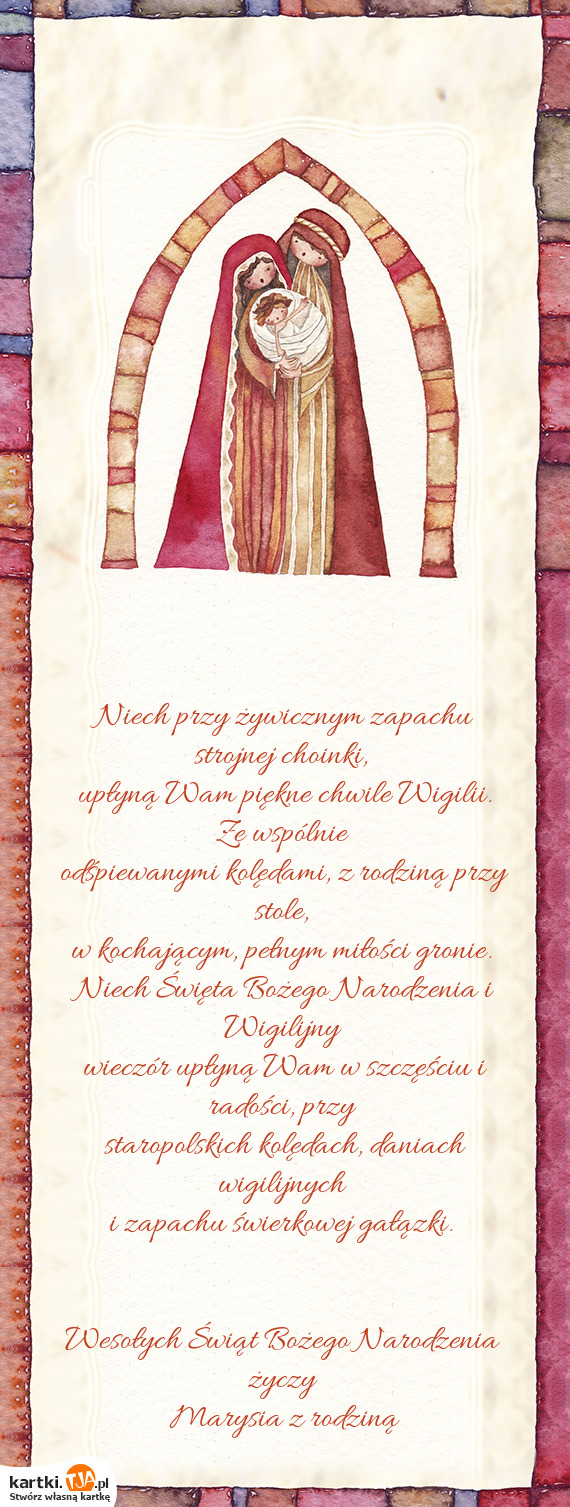 Niech przy żywicznym zapachu
strojnej choinki,
upłyną Wam piękne chwile Wigilii.
Ze wspólnie
odśpiewanymi kolędami, z rodziną przy
stole,
w kochającym, pełnym miłości gronie.
Niech Święta Bożego Narodzenia i
Wigilijny
wieczór upłyną Wam w szczęściu i
radości, przy
staropolskich kolędach, daniach
wigilijnych
i zapachu świerkowej gałązki.
Wesołych Świąt Bożego Narodzenia
życzy
Marysia z rodziną
kartki.TJA.pl
Stwórz własną kartkę